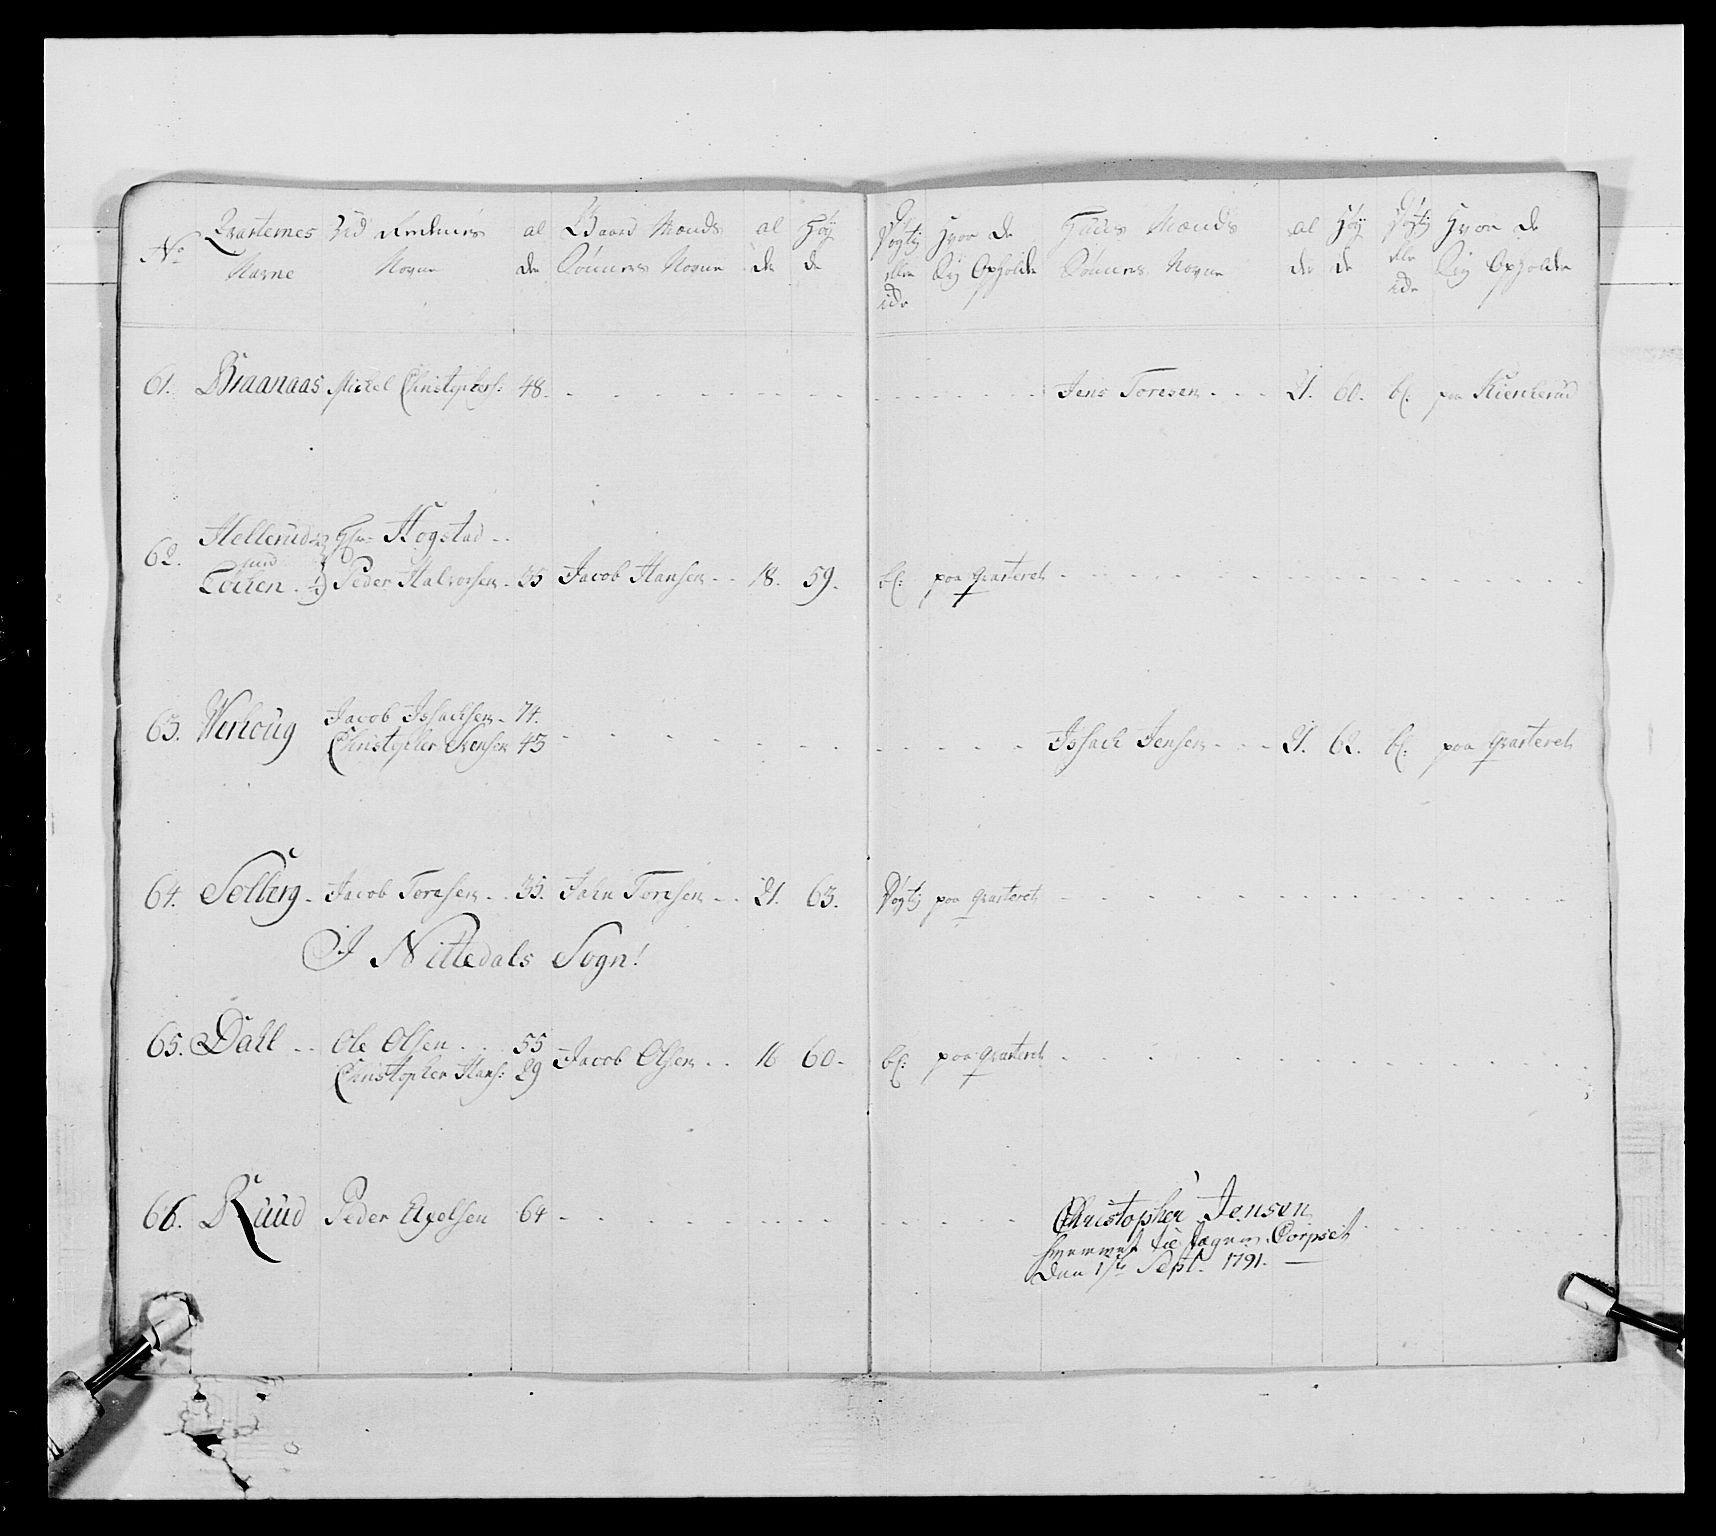 No Qvarternes Navne Ved Kiendenes Navne al der Gaard Mænds Sønners Navne al der Høy de Døgtig eller icke Hvor de Sig Opholder Huus Mænds Sønners Navne al der Høy de Døgtig eller icke Hvor de Sig Opholder
61. Braanaas Mickel Christophers: 48. Jens Toresen 21. 60. bl: paa Kierkerud
62. Hellerud Hr Hogstad
med
Peder Halvorsen 35 Jacob Hansen 18. 59. bl: paa Qvarteret
63. Werhoug Jacob Issachsen 74.
Christopher Svensen 43 Issach Jensen 21. 62. bl: paa Qvarteret
64. Solberg Jacob Toresen 35. John Toresen 21. 63. Døgtig paa Qvarteret
I Nittedals Sogn!
65. Dall Ole Olsen 55
Christopher Hans: 29 Jacob Olsen 16 60. bl: paa Qvarteret
66. Ruud Peder Axelsen 64 Christopher Jensen
hvervet til Jæger Corpset
Den 1ste Sept. 1791.